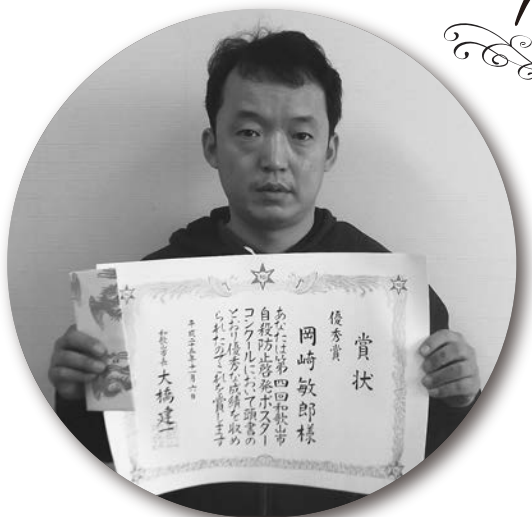 賞状
優秀賞
岡崎敏郎様
あなたは第四回和歌山市
自殺防止啓発ポスター
コンクールにおいて頭書の
とおり優秀な成績を収め
られたのでこれを賞します
平成二十五年十一月六日
和歌山市長 大橋建一